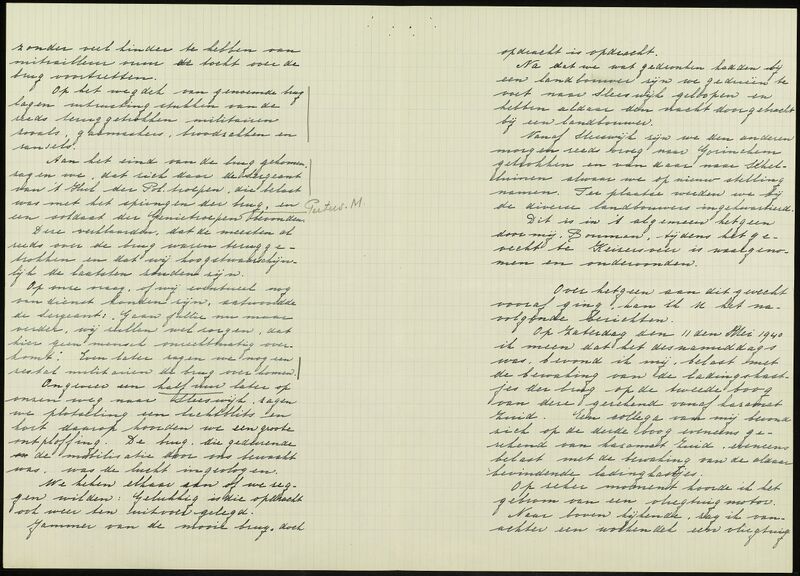 zonder veel hinder te hebben van
mitrailleur vuur de tocht over de
brug voortzetten.
Op het wegdek van genoemde brug
lagen uitrusting stukken van de
reeds teruggetrokken militairen
zooals, gasmaskers, broodzakken en
ransels.
Aan het eind van de brug gekomen,
zagen we, dat zich daar de Sergeant
van 't Hul der Pol. troepen, die belast
was met het springen der brug, en
Peeters. M.
een soldaat der Genietroepen bevonden.
Deze verklaarden, dat de meesten al
reeds over de brug waren terugge-
trokken en dat wij hoogstwaarschijn-
lijk de laatsten zouden zijn.
Op onze vraag, of wij eventueel nog
van dienst konden zijn, antwoordde
de Sergeant: Gaan jullie nu maar
verder, wij zullen wel zorgen, dat
hier geen mensch onrechtmatig over
komt! Even later zagen we nog een
restal militairen de brug over komen.
Ongeveer een half uur later op
onzen weg naar Sleeuwijk, zagen
we plotseling een luchtflits en
kort daarop hoorden we een groote
ontploffing. De brug, die gedurende
de mobilisatie door ons bewaakt
was, was de lucht ingevlogen.
We keken elkaar aan of we zeg-
gen wilden: Gelukkig is die opdracht
ook weer ten uitvoer gelegd.
Jammer van de mooie brug, doch
opdracht is opdracht.
Na dat we wat gedronken hadden bij
een landbouwer zijn we gedrieën te
voet naar Sleeuwijk geloopen en
hebben aldaar den nacht doorgebracht
bij een landbouwer.
Vanaf Sleeuwijk zijn we den anderen
morgen reeds vroeg naar Gorinchem
getrokken en van daar naar Schel-
luinen alwaar we op nieuw stelling
namen. Ter plaatse werden we bij
de diverse landbouwers ingekwartierd.
Dit is in 't algemeen hetgeen
door mij, Bouman, tijdens het ge-
vecht te Keizersveer is waargeno-
men en ondervonden.
Over hetgeen aan dit gevecht
vooraf ging, kan ik U het na-
volgende berichten.
Op Zaterdag den 11 den Mei 1940
ik meen dat het des namiddags
was, bevond ik mij belast met
de bewaking van de ladingskast-
jes der brug op de tweede boog
van deze gerekend vanaf kazemat
Zuid. Een collega van mij bevond
zich op de derde boog eveneens ge-
rekend van kazemat Zuid, eveneens
belast met de bewaking van de aldaar
bevindende ladingkastjes.
Op zeker moment hoorde ik het
gebrom van een vliegtuigmotor.
Naar boven kijkende, zag ik van-
achter een wolkendek een vliegtuig